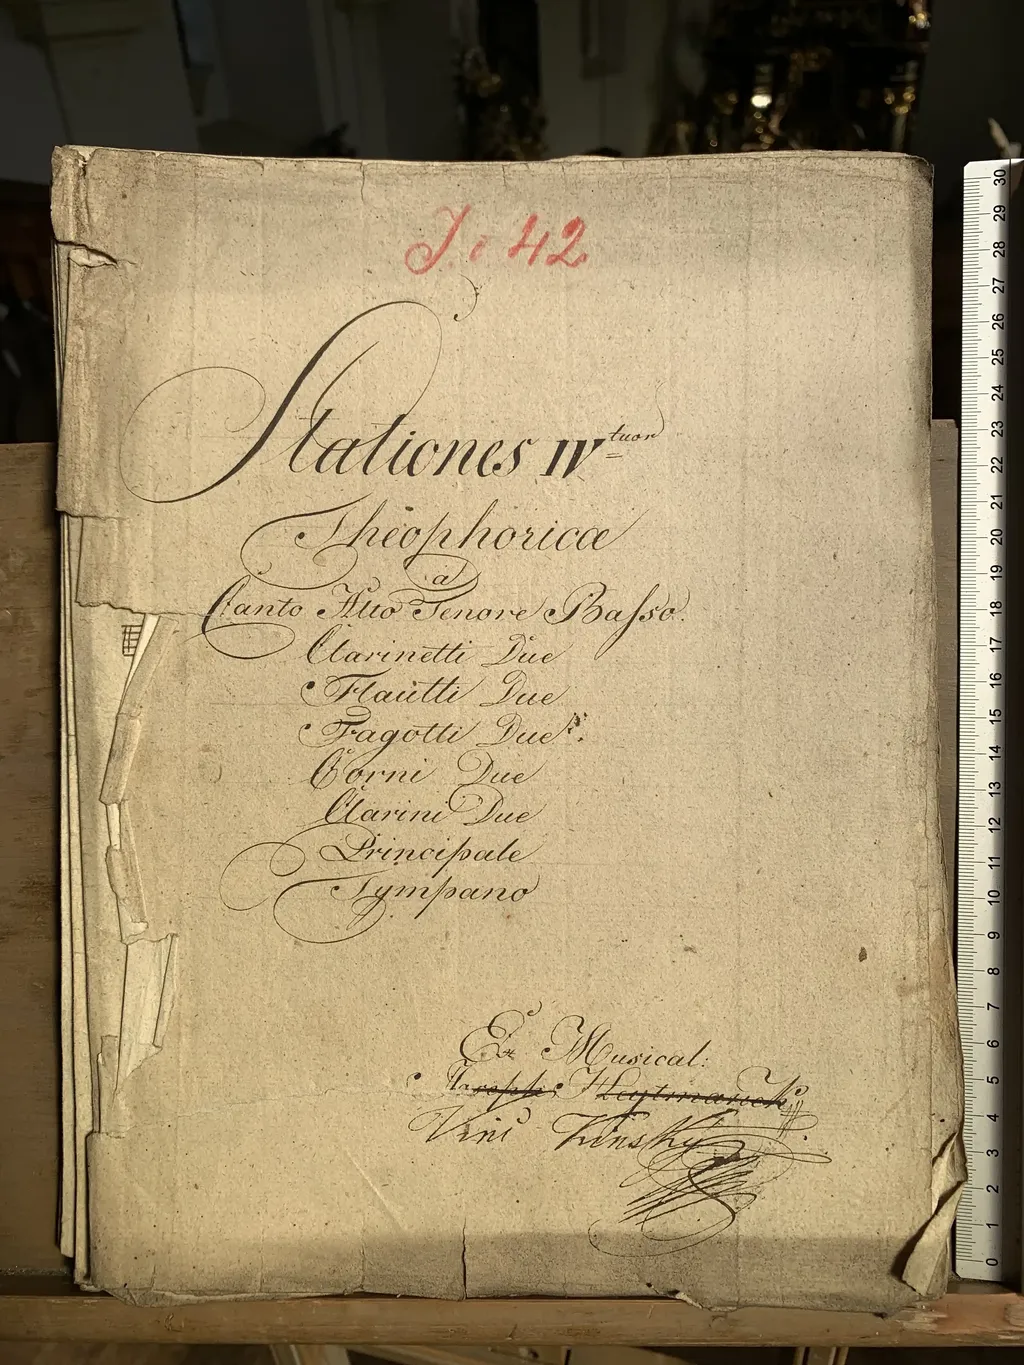 J. 42
Stationes IV tuor
Theophoricæ
a
Canto Alto Tenore Basso.
Clarinetti Due
Flautti Due
Fagotti Due
Corni Due
Clarini Due
Principale
Tympano
Ex Musical:
Joseph
Kinsky
30
29
28
27
26
25
24
23
22
21
20
19
18
17
16
15
14
13
12
11
10
9
8
7
6
5
4
3
2
1
0